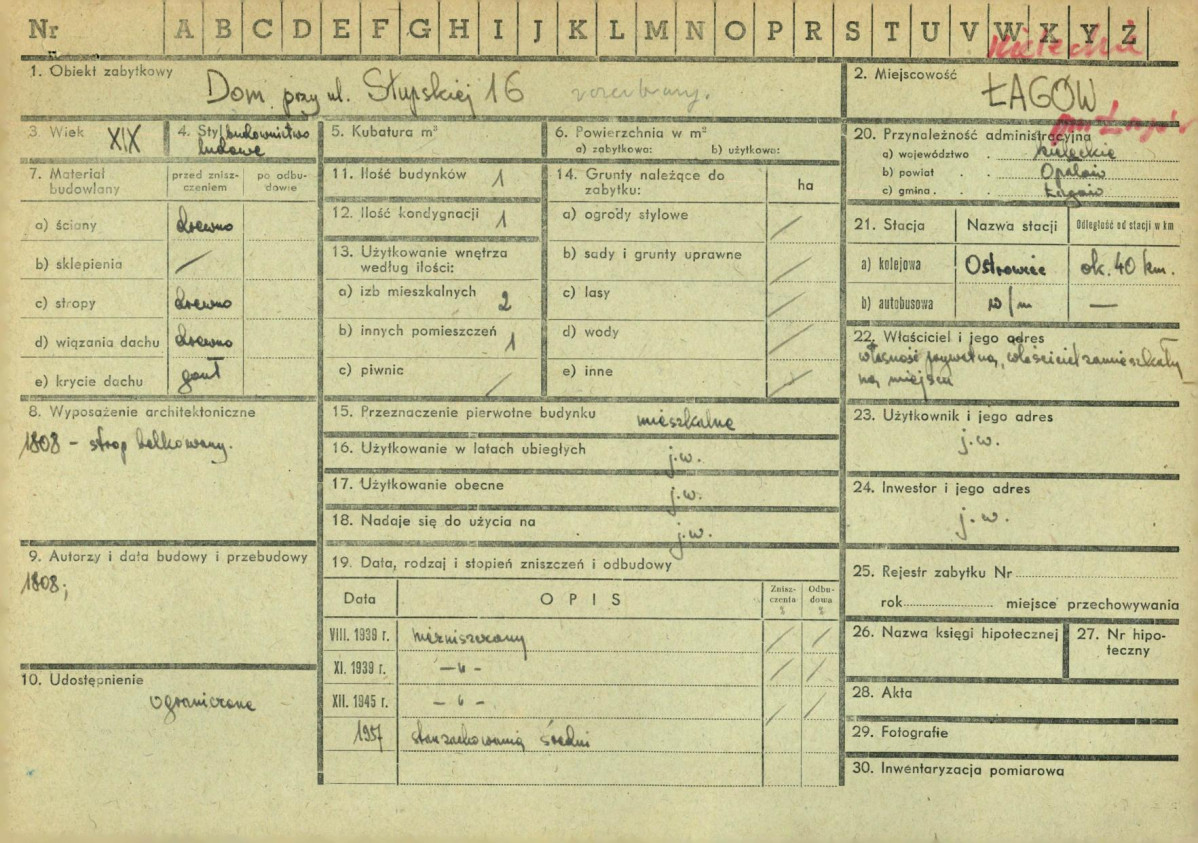 Nr A B C D E F G H I J K L M N O P R S T U V W X Y Ż
Kieleckie
1. Obiekt zabytkowy
Dom przy ul. Słupskiej 16 rozebrany.
2. Miejscowość
ŁAGÓW
3. Wiek XIX
4. Styl budownictwo
ludowe
5. Kubatura m³
6. Powierzchnia w m²
a) zabytkowa: b) użytkowa:
gm. Łagów
20. Przynależność administracyjna
a) województwo . kieleckie
b) powiat . . Opatów
c) gmina . . . Łagów
7. Materiał
budowlany
przed znisz-
czeniem
po odbu-
dowie
a) ściany drewno
b) sklepienia /
c) stropy drewno
d) wiązania dachu drewno
e) krycie dachu gont
11. Ilość budynków 1
12. Ilość kondygnacji 1
13. Użytkowanie wnętrza
według ilości:
a) izb mieszkalnych 2
b) innych pomieszczeń 1
c) piwnic /
14. Grunty należące do
zabytku:
ha
a) ogrody stylowe /
b) sady i grunty uprawne /
c) lasy /
d) wody /
e) inne /
21. Stacja Nazwa stacji Odległość od stacji w km
a) kolejowa Ostrowiec ok. 40 km.
b) autobusowa w/m —
22. Właściciel i jego adres
własność prywatna, właściciel zamieszkały
na miejscu
8. Wyposażenie architektoniczne
1808 – strop belkowany.
15. Przeznaczenie pierwotne budynku mieszkalne
16. Użytkowanie w latach ubiegłych j.w.
17. Użytkowanie obecne j.w.
18. Nadaje się do użycia na j.w.
23. Użytkownik i jego adres
j.w.
24. Inwestor i jego adres
j.w.
9. Autorzy i data budowy i przebudowy
1808;
19. Data, rodzaj i stopień zniszczeń i odbudowy
Data OPIS
Znisz-
czenia
%
Odbu-
dowa
%
VIII. 1939 r. niezniszczony / /
XI. 1939 r. – „ – / /
XII. 1945 r. – „ – / /
1957 stan zachowania średni
10. Udostępnienie
ograniczone
25. Rejestr zabytku Nr
rok miejsce przechowywania
26. Nazwa księgi hipotecznej
27. Nr hipo-
teczny
28. Akta
29. Fotografie
30. Inwentaryzacja pomiarowa